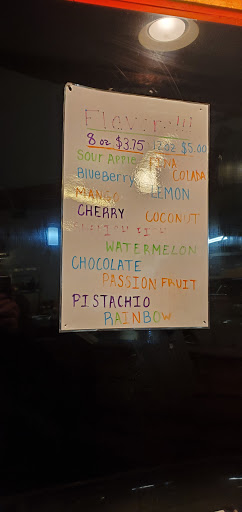 Flavors!!!
8 oz $3.75 12 oz $5.00
SOUR APPLE PINA COLADA
BlueBerry LEMON
MANGO
CHERRY COCONUT
WATERMELON
CHOCOLATE
PASSION FRUIT
PISTACHIO
RAINBOW